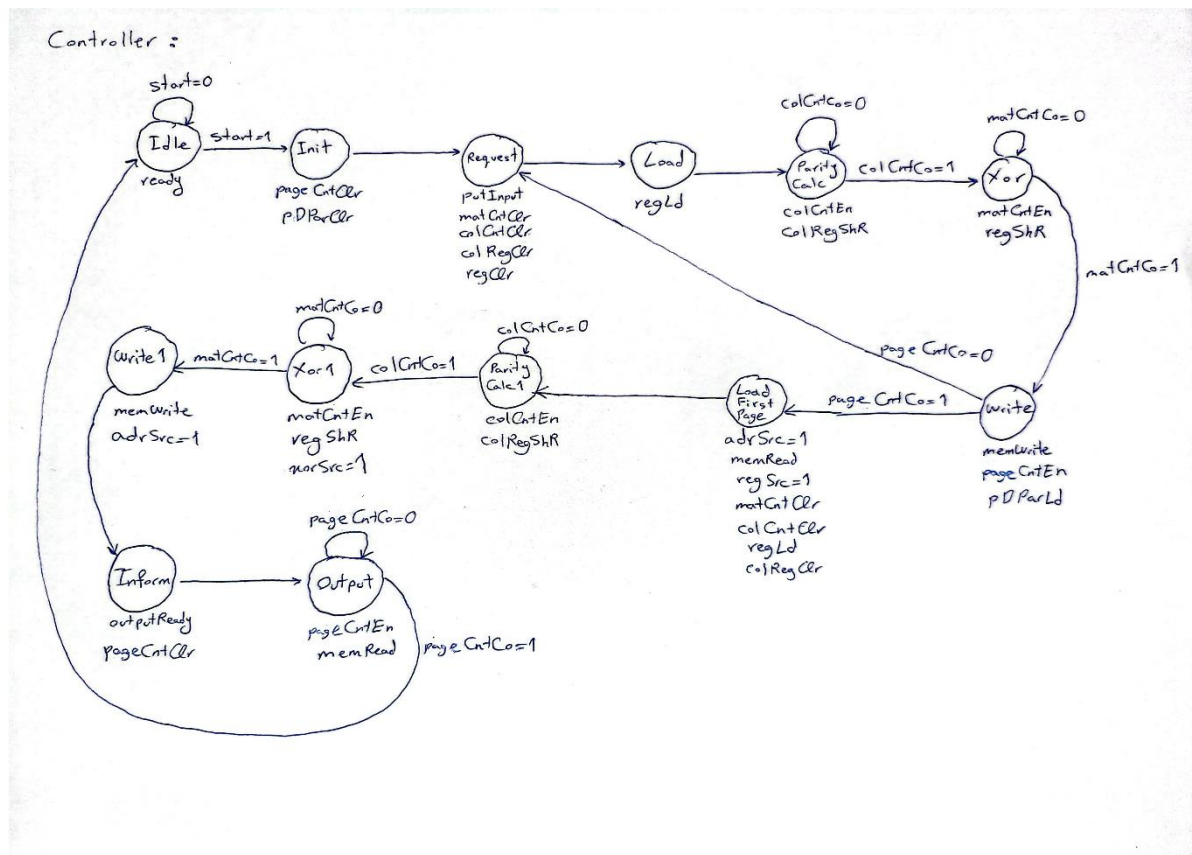 Controller :
start=0
Idle
ready
start=1
Init
pageCntClr
pDParClr
Request
putInput
matCntClr
colCntClr
colRegClr
regClr
Load
regLd
colCntCo=0
Parity
Calc
colCntEn
ColRegShR
colCntCo=1
matCntCo=0
Xor
matCntEn
regShR
matCntCo=1
write
memWrite
pageCntEn
pDParLd
pageCntCo=0
pageCntCo=1
Load
First
Page
adrSrc=1
memRead
regSrc=1
matCntClr
colCntClr
regLd
colRegClr
colCntCo=0
Parity
Calc1
colCntEn
colRegShR
colCntCo=1
matCntCo=0
Xor1
matCntEn
regShR
xorSrc=1
matCntCo=1
write1
memWrite
adrSrc=1
Inform
outputReady
pageCntClr
pageCntCo=0
Output
pageCntEn
memRead
pageCntCo=1